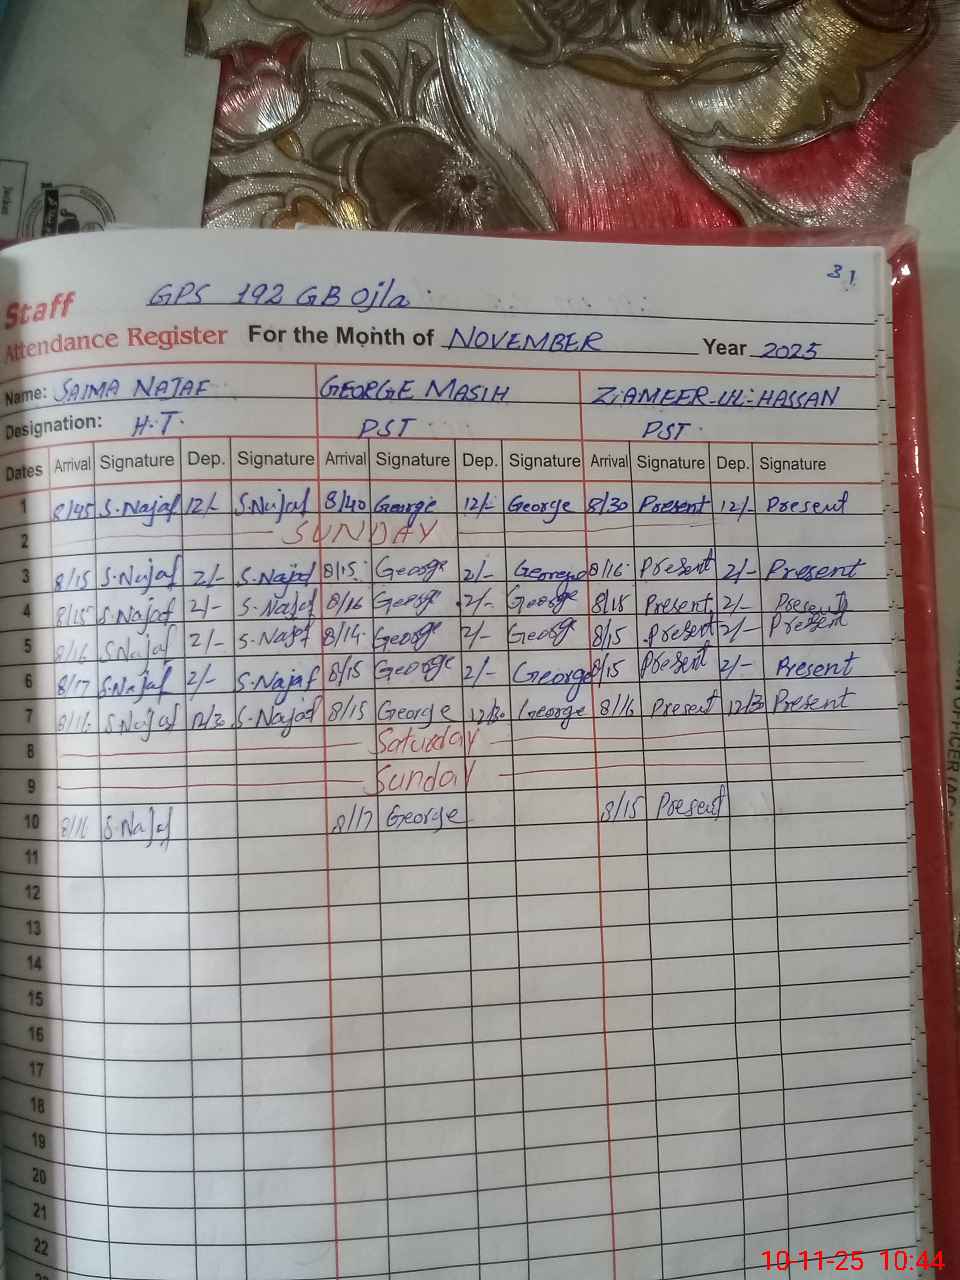 31
GPS 192 GB Ojla
Staff
Attendance Register For the Month of NOVEMBER Year 2025
Name: SAIMA NAJAF GEORGE MASIH ZAMEER-UL-HASSAN
Designation: H.T. PST PST.
Dates Arrival Signature Dep. Signature Arrival Signature Dep. Signature Arrival Signature Dep. Signature
1 8/45 S.Najaf 12/- S.Najaf 8/40 George 12/- George 8/30 Present 12/- Present
2 SUNDAY
3 8/15 S.Najaf 2/- S.Najaf 8/15 George 2/- George 8/16 Present 2/- Present
4 8/15 S.Najaf 2/- S.Najaf 8/16 George 2/- George 8/15 Present 2/- Present
5 8/16 S.Najaf 2/- S.Najaf 8/14 George 2/- George 8/15 Present 2/- Present
6 8/17 S.Najaf 2/- S.Najaf 8/15 George 2/- George 8/15 Present 2/- Present
7 8/16 S.Najaf 12/30 S.Najaf 8/15 George 12/30 George 8/16 Present 12/30 Present
8 Saturday
9 Sunday
10 8/16 S.Najaf 8/17 George 8/15 Present
11
12
13
14
15
16
17
18
19
20
21
22
10-11-25 10:44